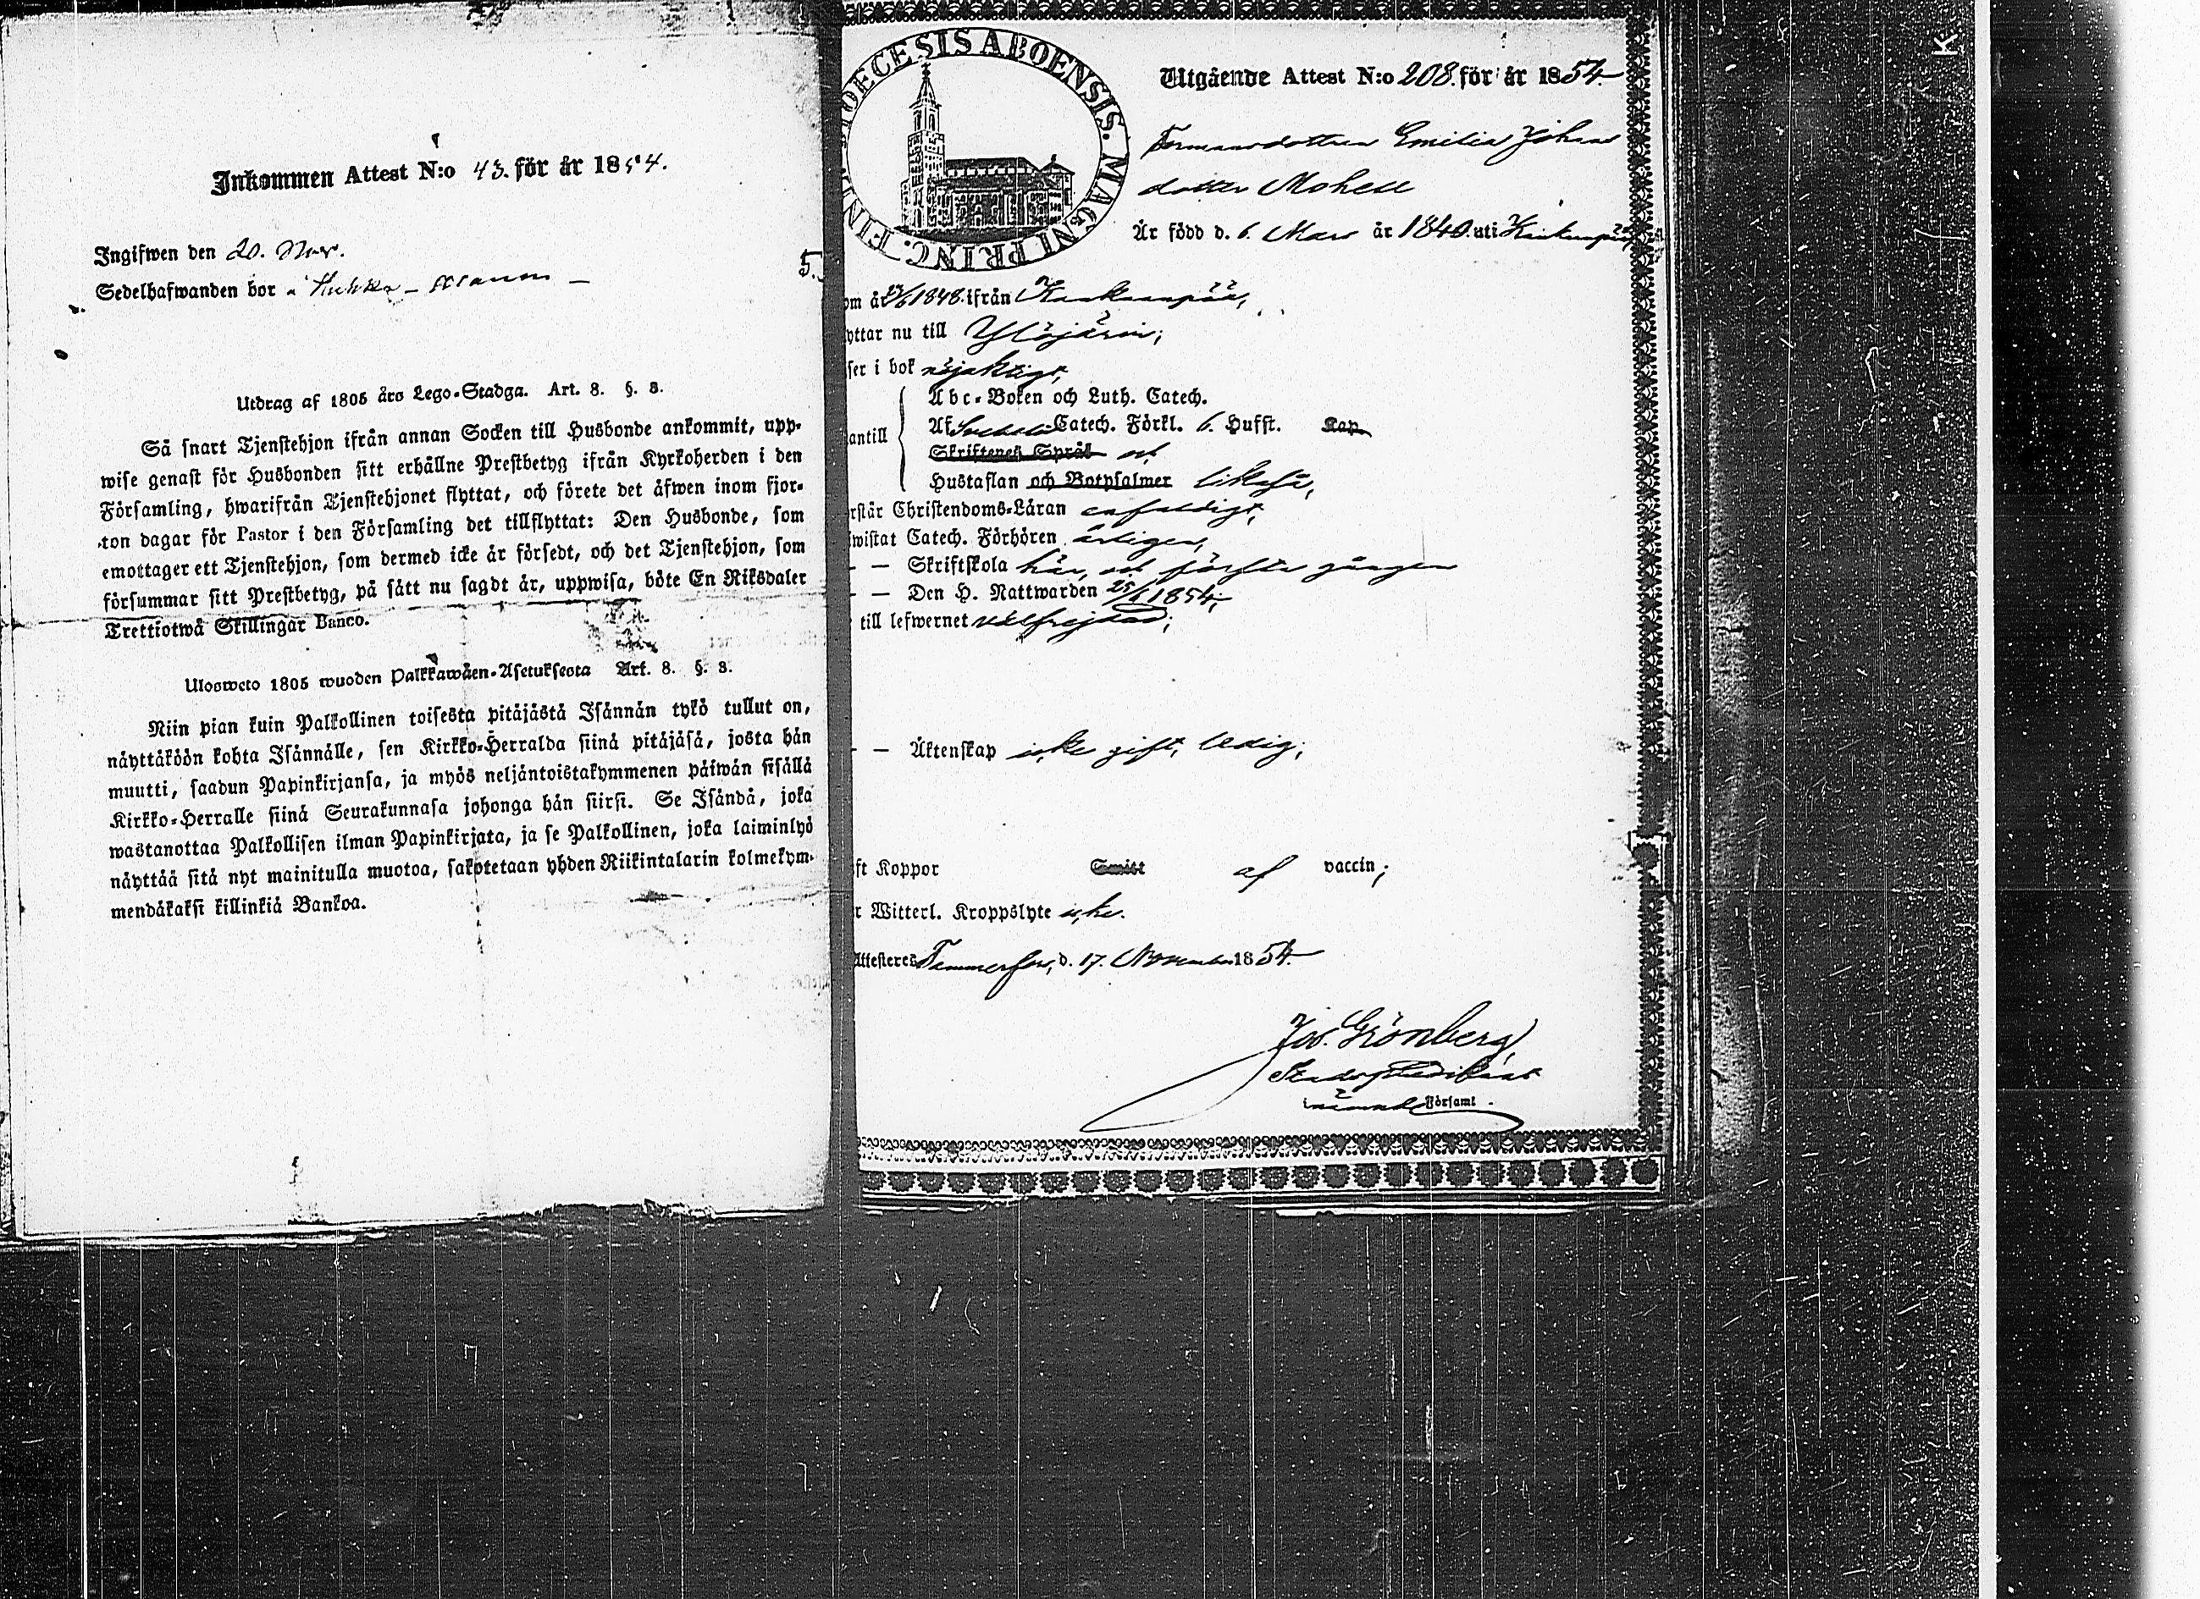 Inkommen Attest N:o 43. för år 1854.
Ingifwen den 20. Nov.
Sedelhafwanden bor
5.
Utdrag af 1805 års Lego-Stadga. Art. 8. §. 3.
Så snart Tjenstehjon ifrån annan Socken till Husbonde ankommit, upp-
wise genast för Husbonden sitt erhållne Prestbetyg ifrån Kyrkoherden i den
Församling, hwarifrån Tjenstehjonet flyttat, och förete det äfwen inom fjor-
ton dagar för Pastor i den Församling det tillflyttat: Den Husbonde, som
emottager ett Tjenstehjon, som dermed icke är försedt, och det Tjenstehjon, som
försummar sitt Prestbetyg, på sätt nu sagdt är, uppwisa, böte En Riksdaler
Trettiotwå Skillingar Banco.
Ulosweto 1805 wuoden Palkkawäen-Asetuksesta Art. 8. §. 3.
Niin pian kuin Palkollinen toisesta pitäjästä Isännän tykö tullut on,
näyttäköön kohta Isännälle, sen Kirkko-Herralda siinä pitäjäsä, josta hän
muutti, saadun Papinkirjansa, ja myös neljäntoistakymmenen päiwän sisällä
Kirkko-Herralle siinä Seurakunnasa johonga hän siirsi. Se Isändä, joka
wastanottaa Palkollisen ilman Papinkirjata, ja se Palkollinen, joka laiminlyö
näyttää sitä nyt mainitulla muotoa, sakotetaan yhden Riikintalarin kolmekym-
mendäkaksi killinkiä Bankoa.
DIOECESIS ABOENSIS. MAGNI PRINC. FIN
Utgående Attest N:o 208. för år 1854.
Formansdottren Emilia Johans
dotter Mohell
Är född d. 6. Mars år 1840. uti Kankaanpää
om år 1848. ifrån Kankaanpää,
yttar nu till Ylöjärvi;
ser i bok nöjaktigt,
Abc-Boken och Luth. Catech.
antill Af Catech. Förkl. 6. Hufst. Kap.
Skriftenes Språk och
Hustaflan och Botpsalmer likaså,
rstår Christendoms-Läran enfaldigt,
wistat Catech. Förhören årligen,
— — Skriftskola här, och första gången
— — Den H. Nattwarden 25/6 1854;
till lefwernet välfrejdad;
— — Äktenskap icke gift, ledig;
ft Koppor Smitt af vaccin;
r Witterl. Kroppslyte icke.
Attesteres Tammerfors, d. 17. November 1854.
Jos. Grönberg
Stadspredikant
i nämnde Församl.
K